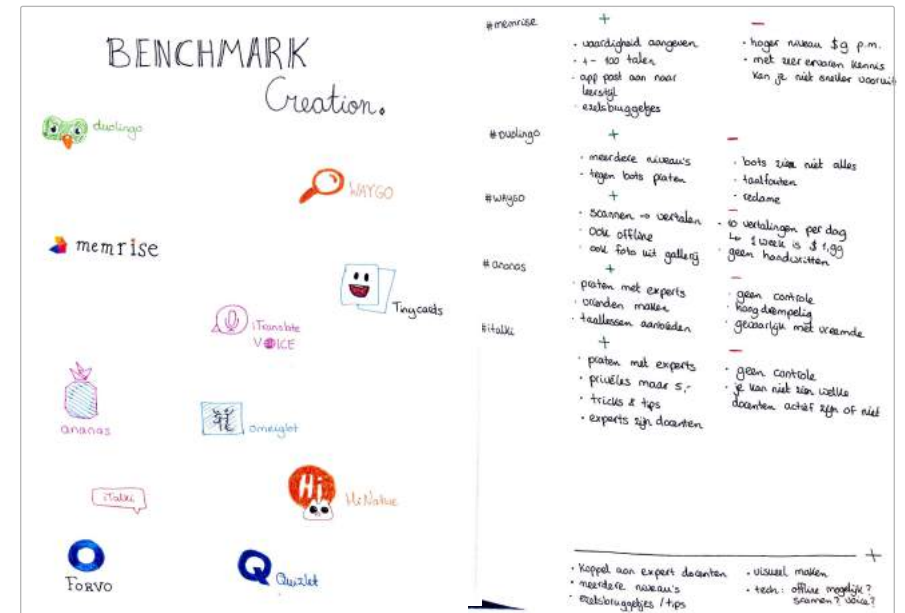 BENCHMARK
Creation.
duolingo
WAYGO
memrise
Tinycards
iTranslate
VOICE
ananas
omniglot
iTalki
HiNative
FORVO
Quizlet
#memrise
+
· vaardigheid aangeven
· +- 100 talen
· app past aan naar
leerstijl
· ezelsbruggetjes
-
· hoger niveau $9 p.m.
· met zeer ervaren kennis
kan je niet sneller vooruit
#Duolingo
+
· meerdere niveau's
· tegen bots praten
-
· bots zien niet alles
· taalfouten
· reclame
#WAYGO
+
· scannen → vertalen
· ook offline
· ook foto uit gallerij
-
· 10 vertalingen per dag
↳ 1 week is $1,99
· geen handwritten
#ananas
+
· praten met experts
· vrienden maken
· taallessen aanbieden
-
· geen controle
· hoogdrempelig
· gevaarlijk met vreemde
#italki
+
· praten met experts
· privéles maar 5,-
· tricks & tips
· experts zijn docenten
-
· geen controle
· je kan niet zien welke
docenten actief zijn of niet
+
· Koppel aan expert docenten
· meerdere niveau's
· ezelsbruggetjes / tips
· visueel maken
· tech: offline mogelijk?
scannen? voice?